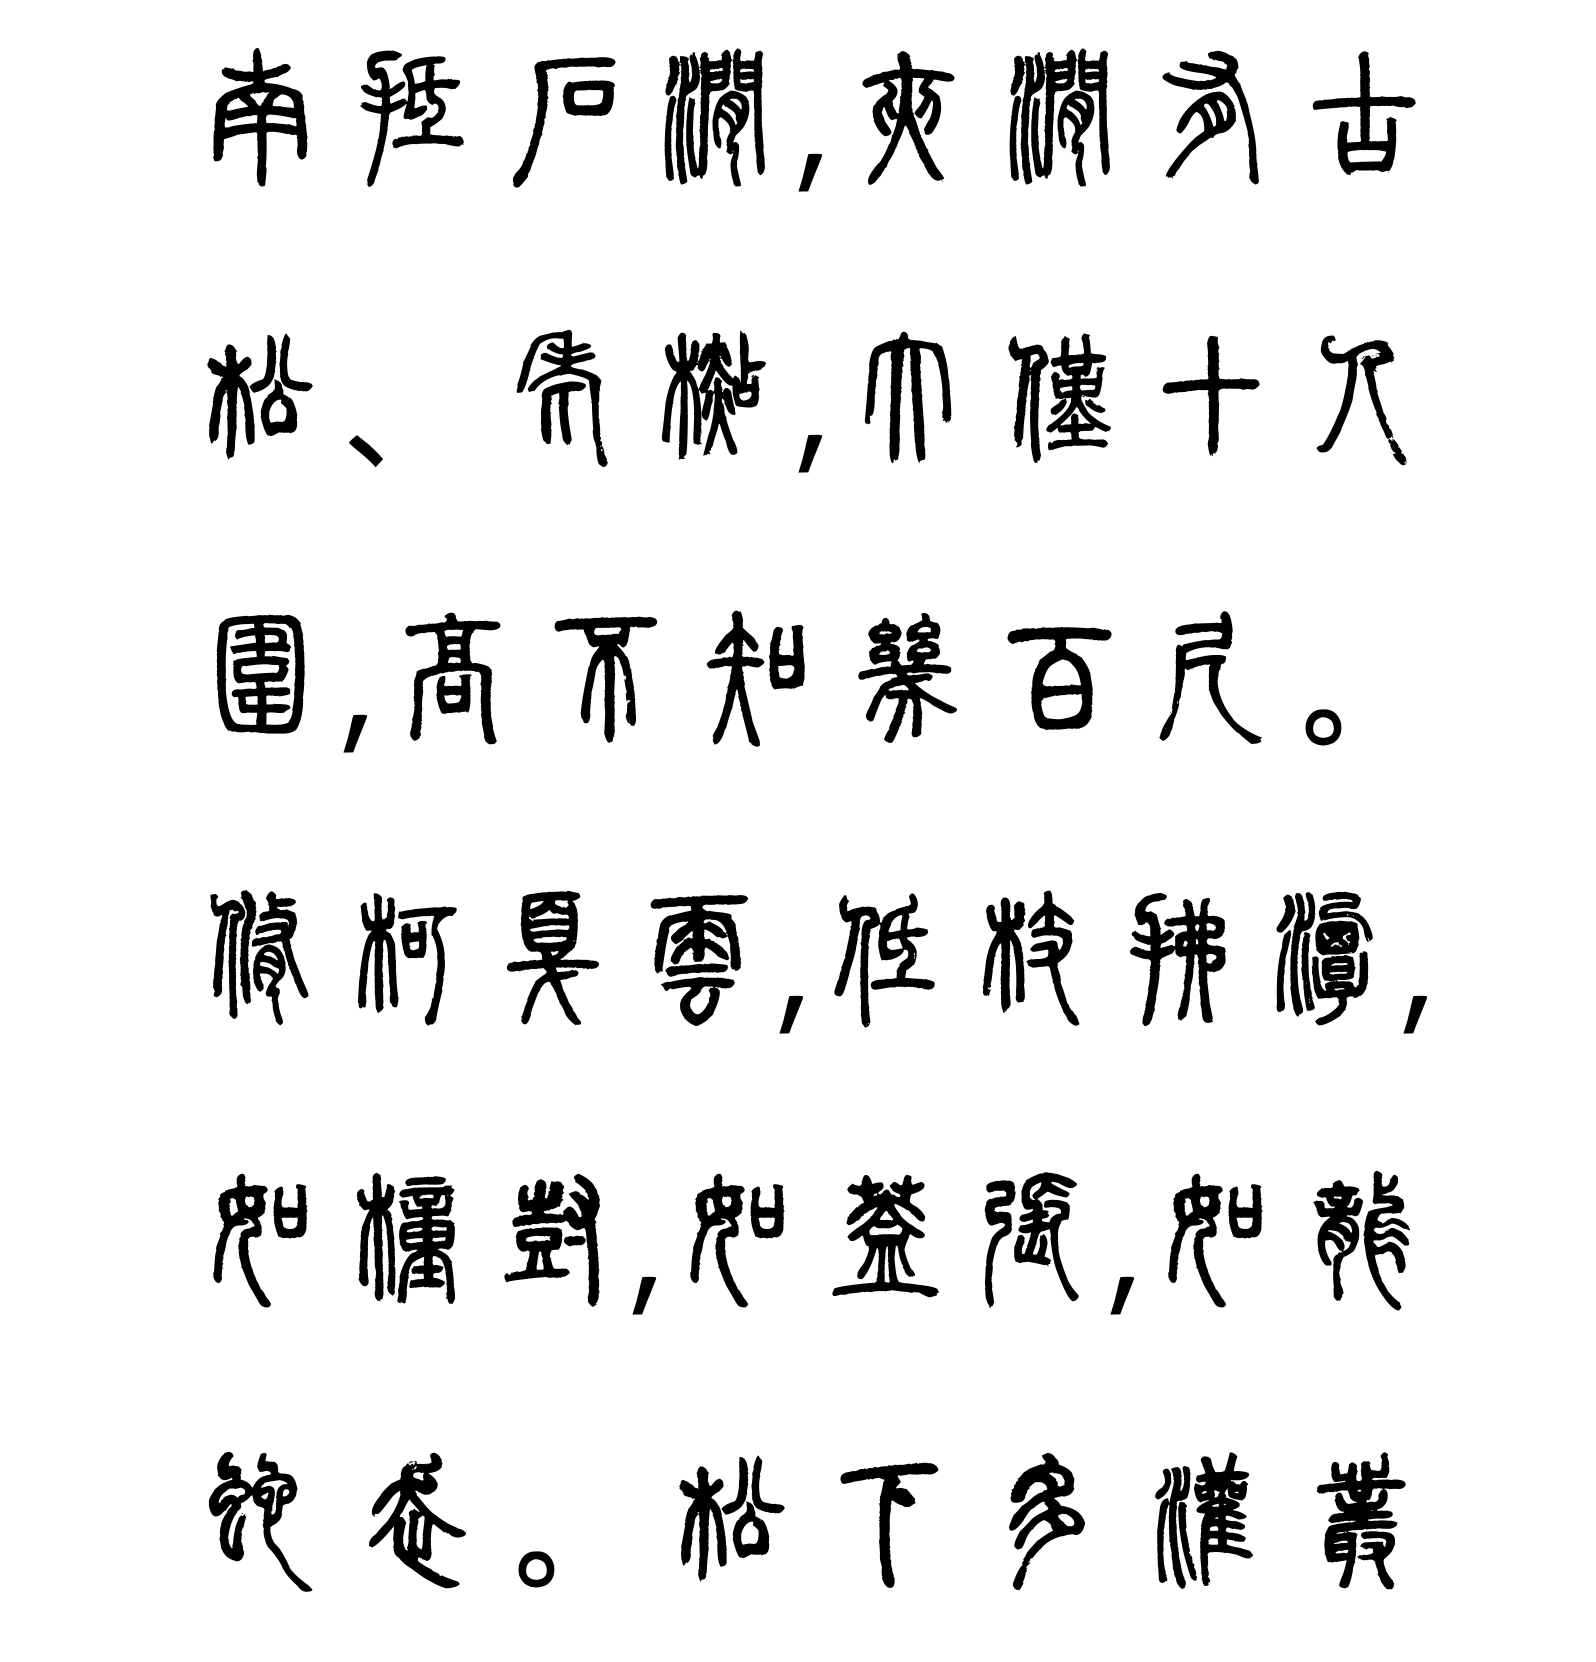 南抵石澗,夾澗有古
松、老杉,大僅十人
圍,高不知幾百尺。
脩柯戛雲,低枝拂潭,
如橦尌,如蓋張,如龍
蛇走。松下多灌叢